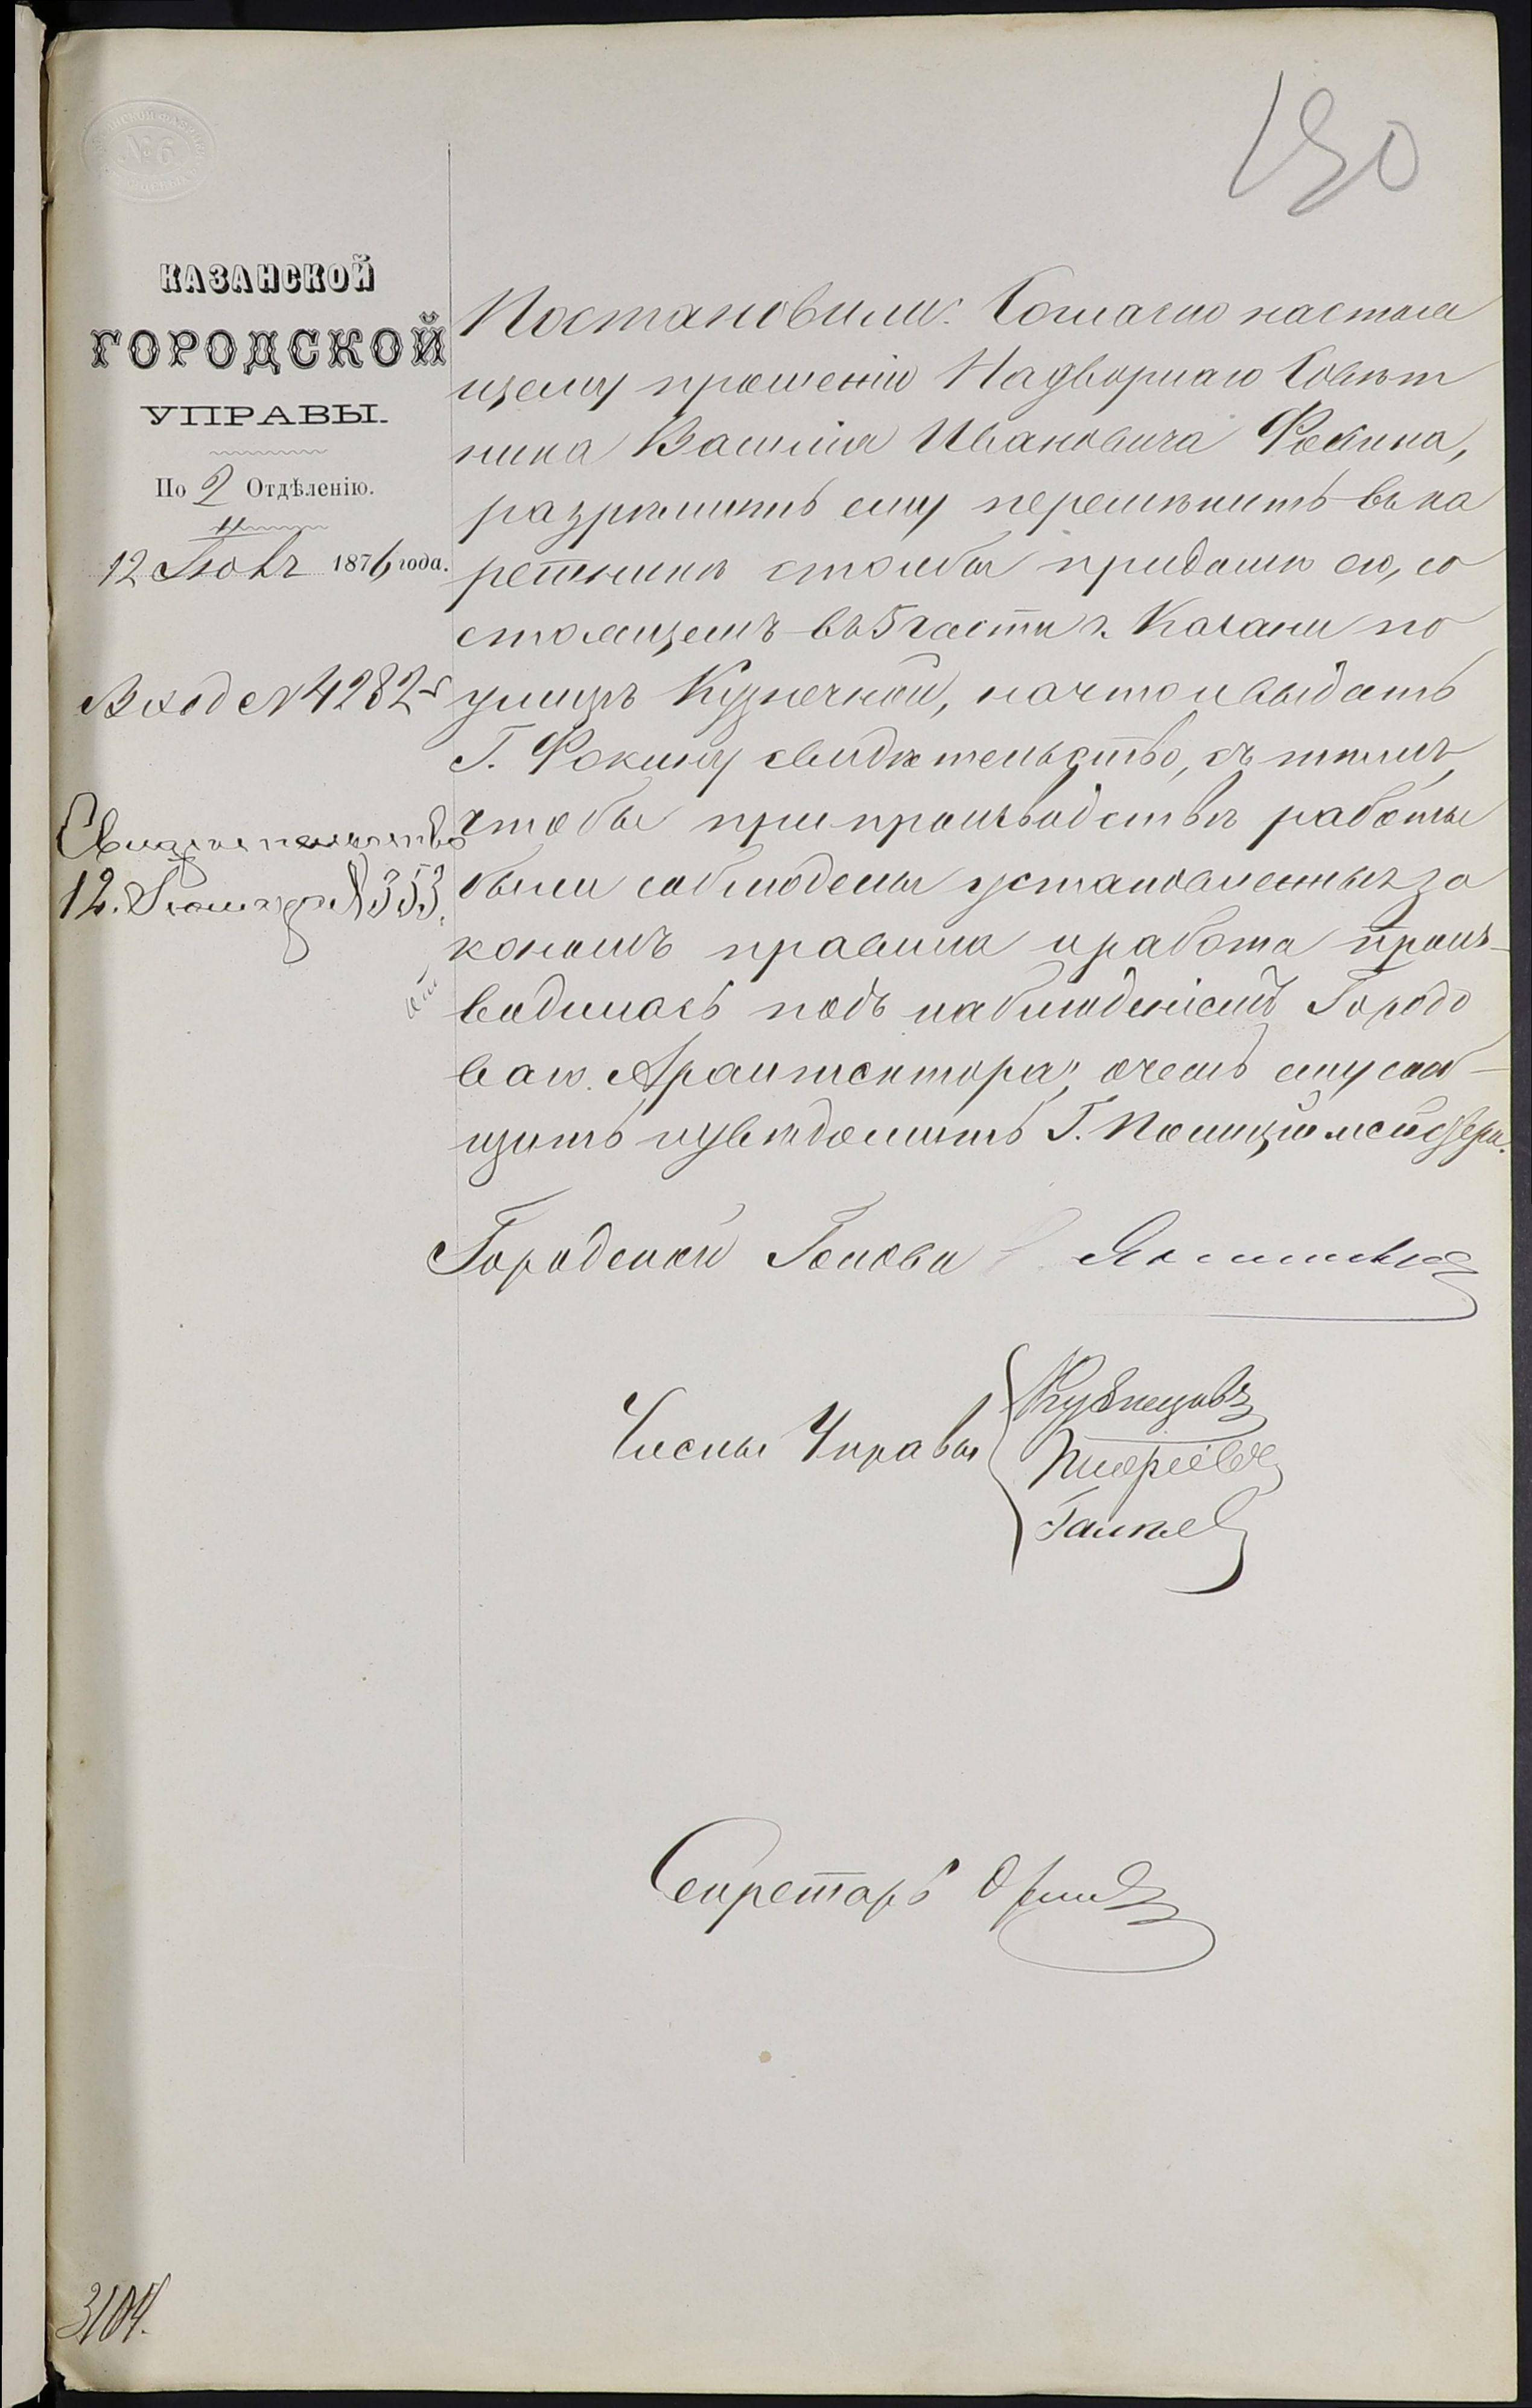 190
№ 6
КАЗАНСКОЙ
ГОРОДСКОЙ
УПРАВЫ.
По 2 Отдѣленію.
12 Іюля 1876 года.
Вход № 4282
Свидѣтельство
12. Іюля № 353.
Постановили: Согласно настоя
щему прошенію Надворнаго Совѣт
ника Василія Ивановича Фокина,
разрѣшить ему перемѣнить въ ка
ретникѣ столбы придомѣ его, со
стоящемъ въ 5 части г. Казани по
улицѣ Кузнечной, на что и выдать
Г. Фокину свидѣтельство, съ тѣмъ,
чтобы при производствѣ работы
были соблюдены установленныя за
кономъ правила и работа произ-
водилась подъ наблюденіемъ Городо
ваго Архитектора, о чемъ ему сооб-
щить и увѣдомить Г. Полицiймейстера.
Городской Голова
Члены Управы
Кузнецовъ
Секретарь
3104.